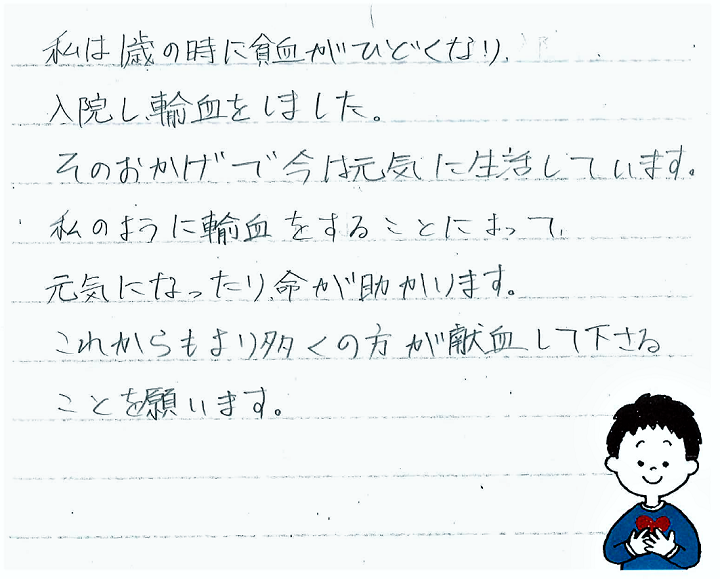 私は1歳の時に貧血がひどくなり、
入院し輸血をしました。
そのおかげで今は元気に生活しています。
私のように輸血をすることによって、
元気になったり、命が助かります。
これからもより多くの方が献血して下さる
ことを願います。